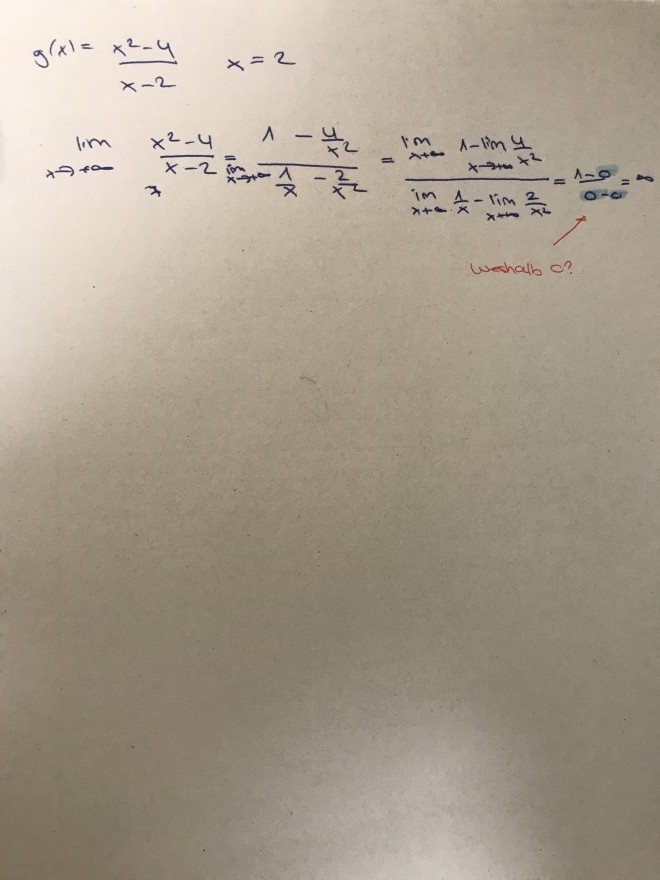 g(x) = x²-4 / x-2   x = 2
lim x→+∞ x²-4 / x-2 = lim x→+∞ 1 - 4/x² / 1/x - 2/x² = lim x→+∞ 1 - lim x→+∞ 4/x² / lim x→+∞ 1/x - lim x→+∞ 2/x² = 1-0 / 0-0 = ∞
weshalb 0?